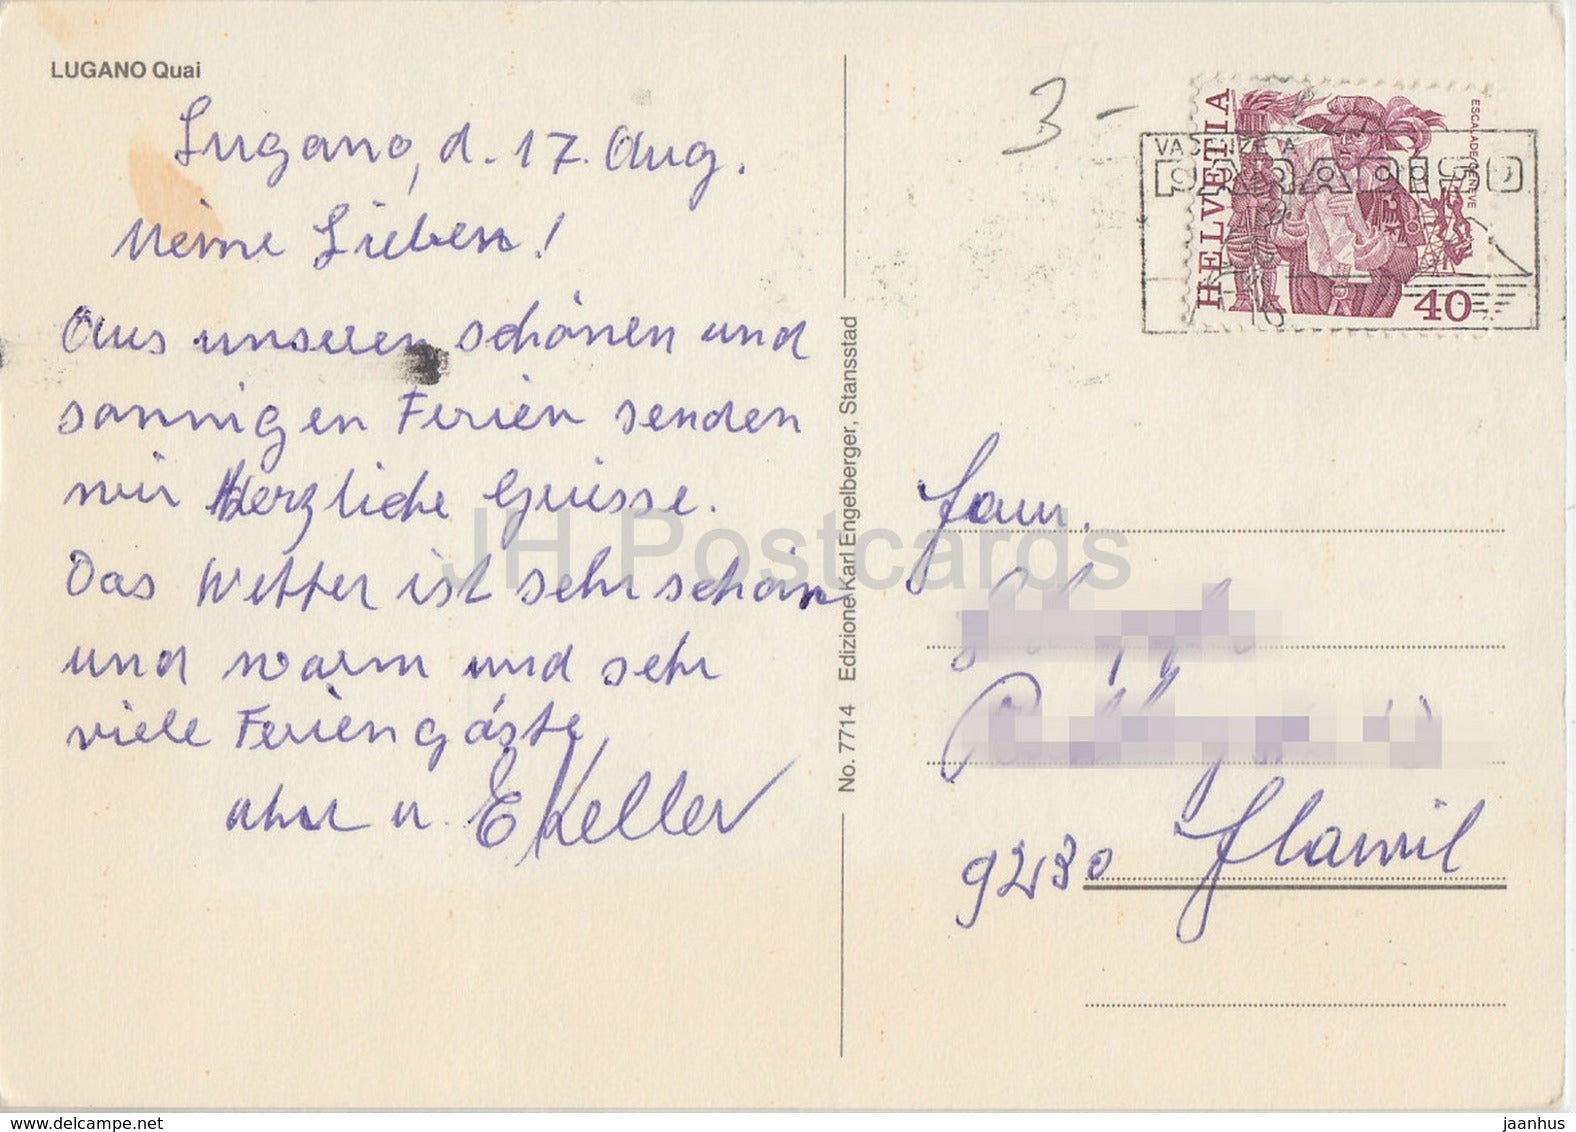 LUGANO Quai
Lugano, d. 17. Aug.
Meine Lieben!
Aus unseren schönen und
sonnigen Ferien senden
wir Herzliche Grüsse.
Das Wetter ist sehr schön
und warm und sehr
viele Feriengäste,
u. E Keller
No. 7714 Edizione Karl Engelberger, Stansstad
3 -
HELVETIA
ESCALADE/GENÈVE
40
Fam.
9230 Flawil
JH Postcards
delcampe.net
jaanhus